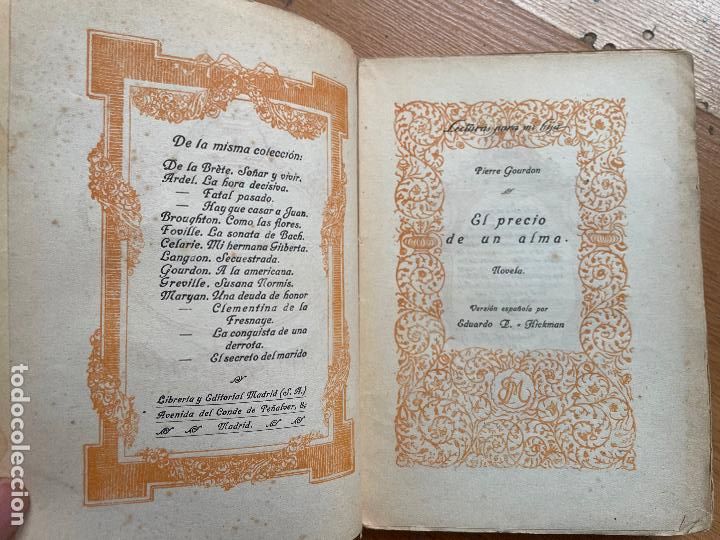 De la misma colección:
De la Brète. Soñar y vivir.
Ardel. La hora decisiva.
— Fatal pasado.
— Hay que casar a Juan.
Broughton. Como las flores.
Foville. La sonata de Bach.
Celarie. Mi hermana Gilberta.
Langaon. Secuestrada.
Gourdon. A la americana.
Greville. Susana Normis.
Maryan. Una deuda de honor
— Clementina de la
Fresnaye.
— La conquista de una
derrota.
— El secreto del marido
Librería y Editorial Madrid (S. A.)
Avenida del Conde de Peñalver, 8:
Madrid.
Lecturas para mi hija
Pierre Gourdon
El precio
de un alma.
Novela.
Versión española por
Eduardo R. - Hickman
M
todocoleccion